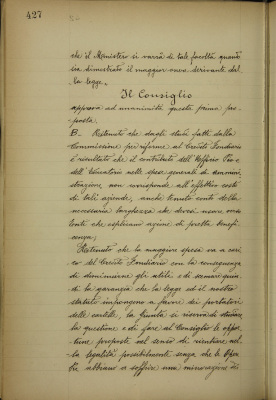 427
che il Ministero si varrà di tale facoltà quando
sia dimostrato il maggior onere derivante dal-
la legge.
Il Consiglio
approva ad unanimità questa prima pro-
posta.
B- Ritenuto che dagli studi fatti dalla
Commissione per riforme al Credito Fondiario
è risultato che il contributo dell'Opificio Pio e
dell'Esattoria nelle spese generali di ammini-
strazione non corrisponde all'effettivo costo
di tali aziende, anche tenuto conto della
necessaria larghezza che devesi avere verso
Enti che esplicano azione di pretta benefi-
cenza;
Ritenuto che la maggiore spesa va a cari-
co del Credito Fondiario con la conseguenza
di diminuirne gli utili e di scemare quin-
di la garanzia che la legge ed il nostro
statuto impongono a favore dei portatori
delle cartelle, la Giunta si riserva di studiare
la questione e di fare al Consiglio le oppor-
tune proposte nel senso di rientrare nel-
la legalità possibilmente senza che le Opere
Pie abbiano a soffrire una minorazione di